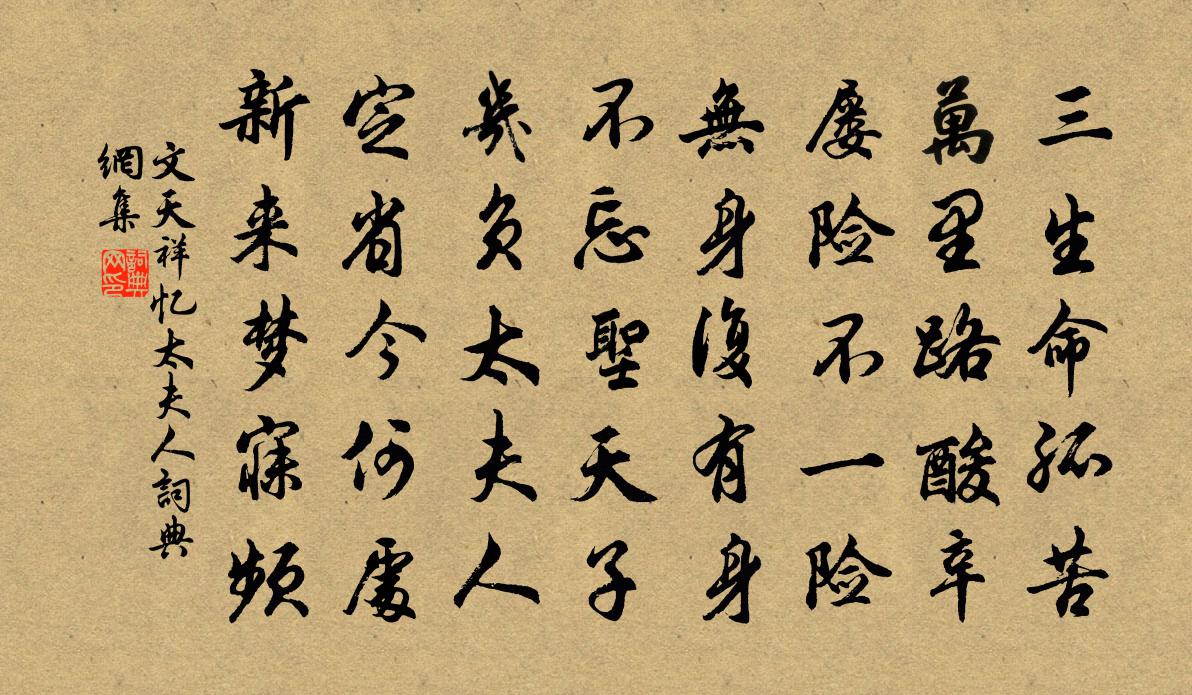 三生命孤苦
萬里路酸辛
屡险不一险
無身復有身
不忘聖天子
幾负太夫人
定省今何處
新来梦寐频
文天祥忆太夫人詞典
網集
詞典
网印